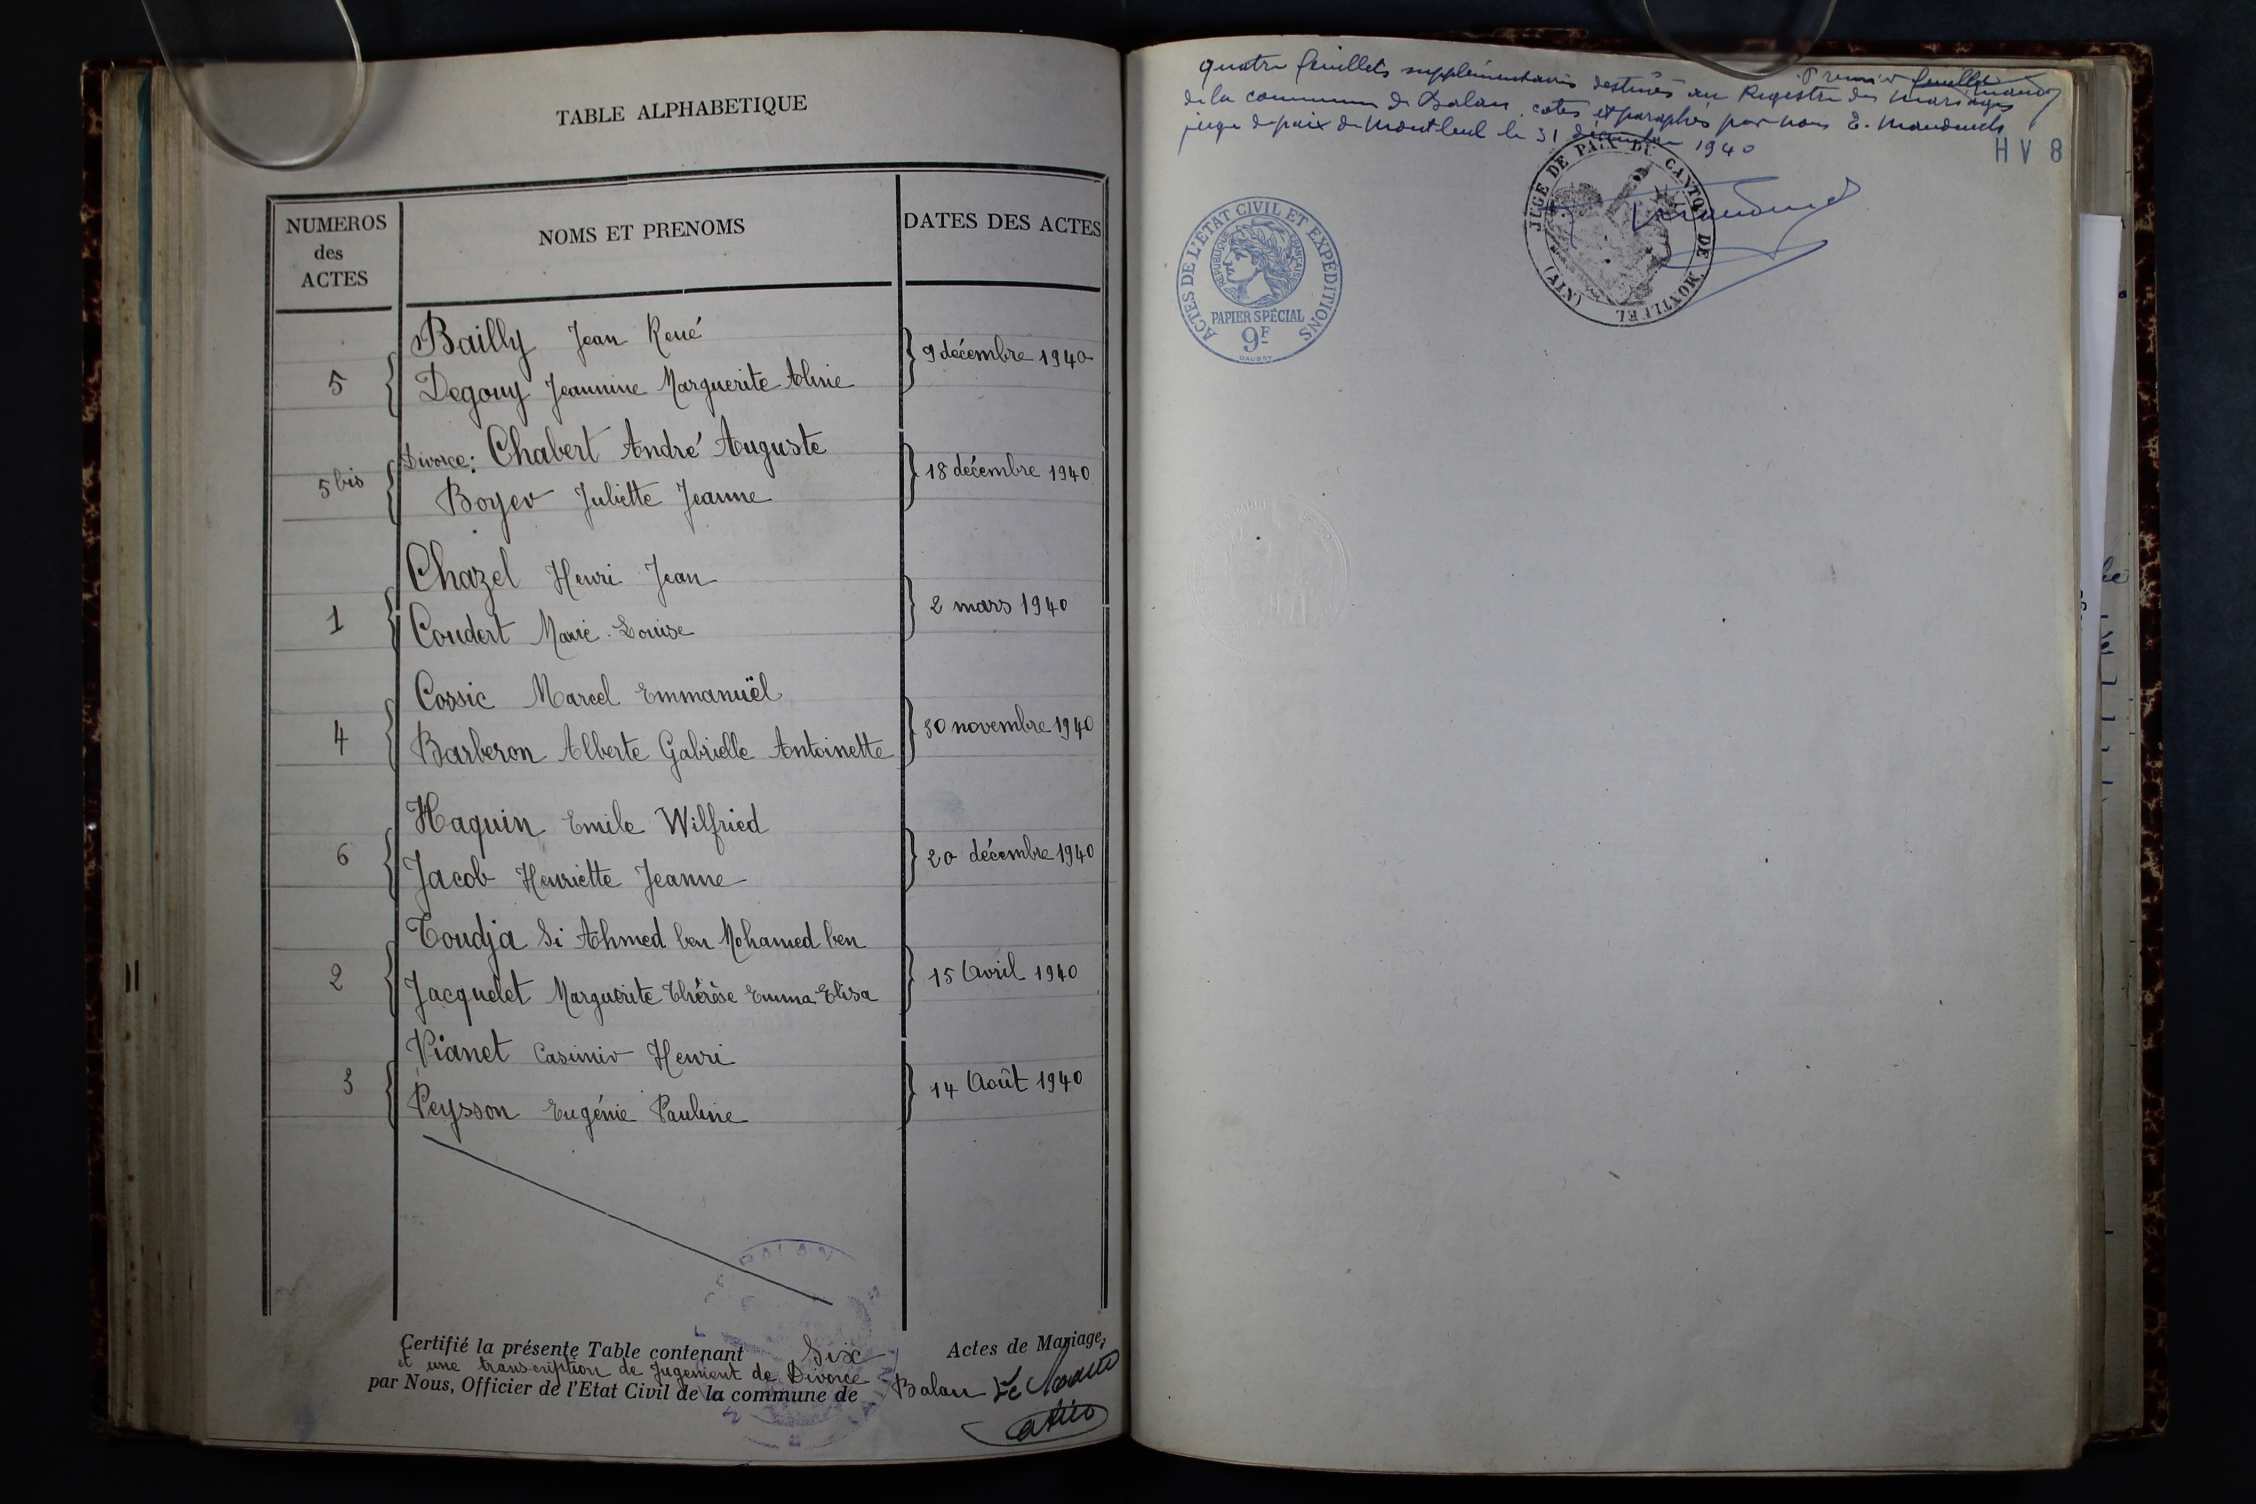 TABLE ALPHABETIQUE
NUMEROS
des
ACTES
NOMS ET PRENOMS
DATES DES ACTES
5
Bailly Jean René
Degouy Jeannine Marguerite Aline
9 décembre 1940
5 bis
Divorce: Chabert André Auguste
Boyer Juliette Jeanne
18 décembre 1940
1
Chazel Henri Jean
Coudert Marie-Louise
2 mars 1940
4
Cossic Marcel Emmanuël
Barberon Alberte Gabrielle Antoinette
30 novembre 1940
6
Haquin Emile Wilfried
Jacob Henriette Jeanne
20 décembre 1940
2
Toudja Si Ahmed ben Mohamed ben
Jacquelet Marguerite Thérèse Emma Elisa
15 Avril 1940
3
Vianet Casimir Henri
Peysson Eugénie Pauline
14 Août 1940
Certifié la présente Table contenant Six Actes de Mariage,
et une transcription de Jugement de Divorce
par Nous, Officier de l'Etat Civil de la commune de Balan Le
BALAN
Premier feuillet
quatre feuillets supplémentaires destinés au Registre des mariages
de la commune de Balan, cotés et paraphés par nous E.
juge de paix de Montluel le 31 décembre 1940
HV 8
JUGE DE PAIX DU CANTON DE MONTLUEL (AIN)
ACTES DE L'ETAT CIVIL ET EXPEDITIONS
REPUBLIQUE FRANÇAISE
PAPIER SPÉCIAL
9F